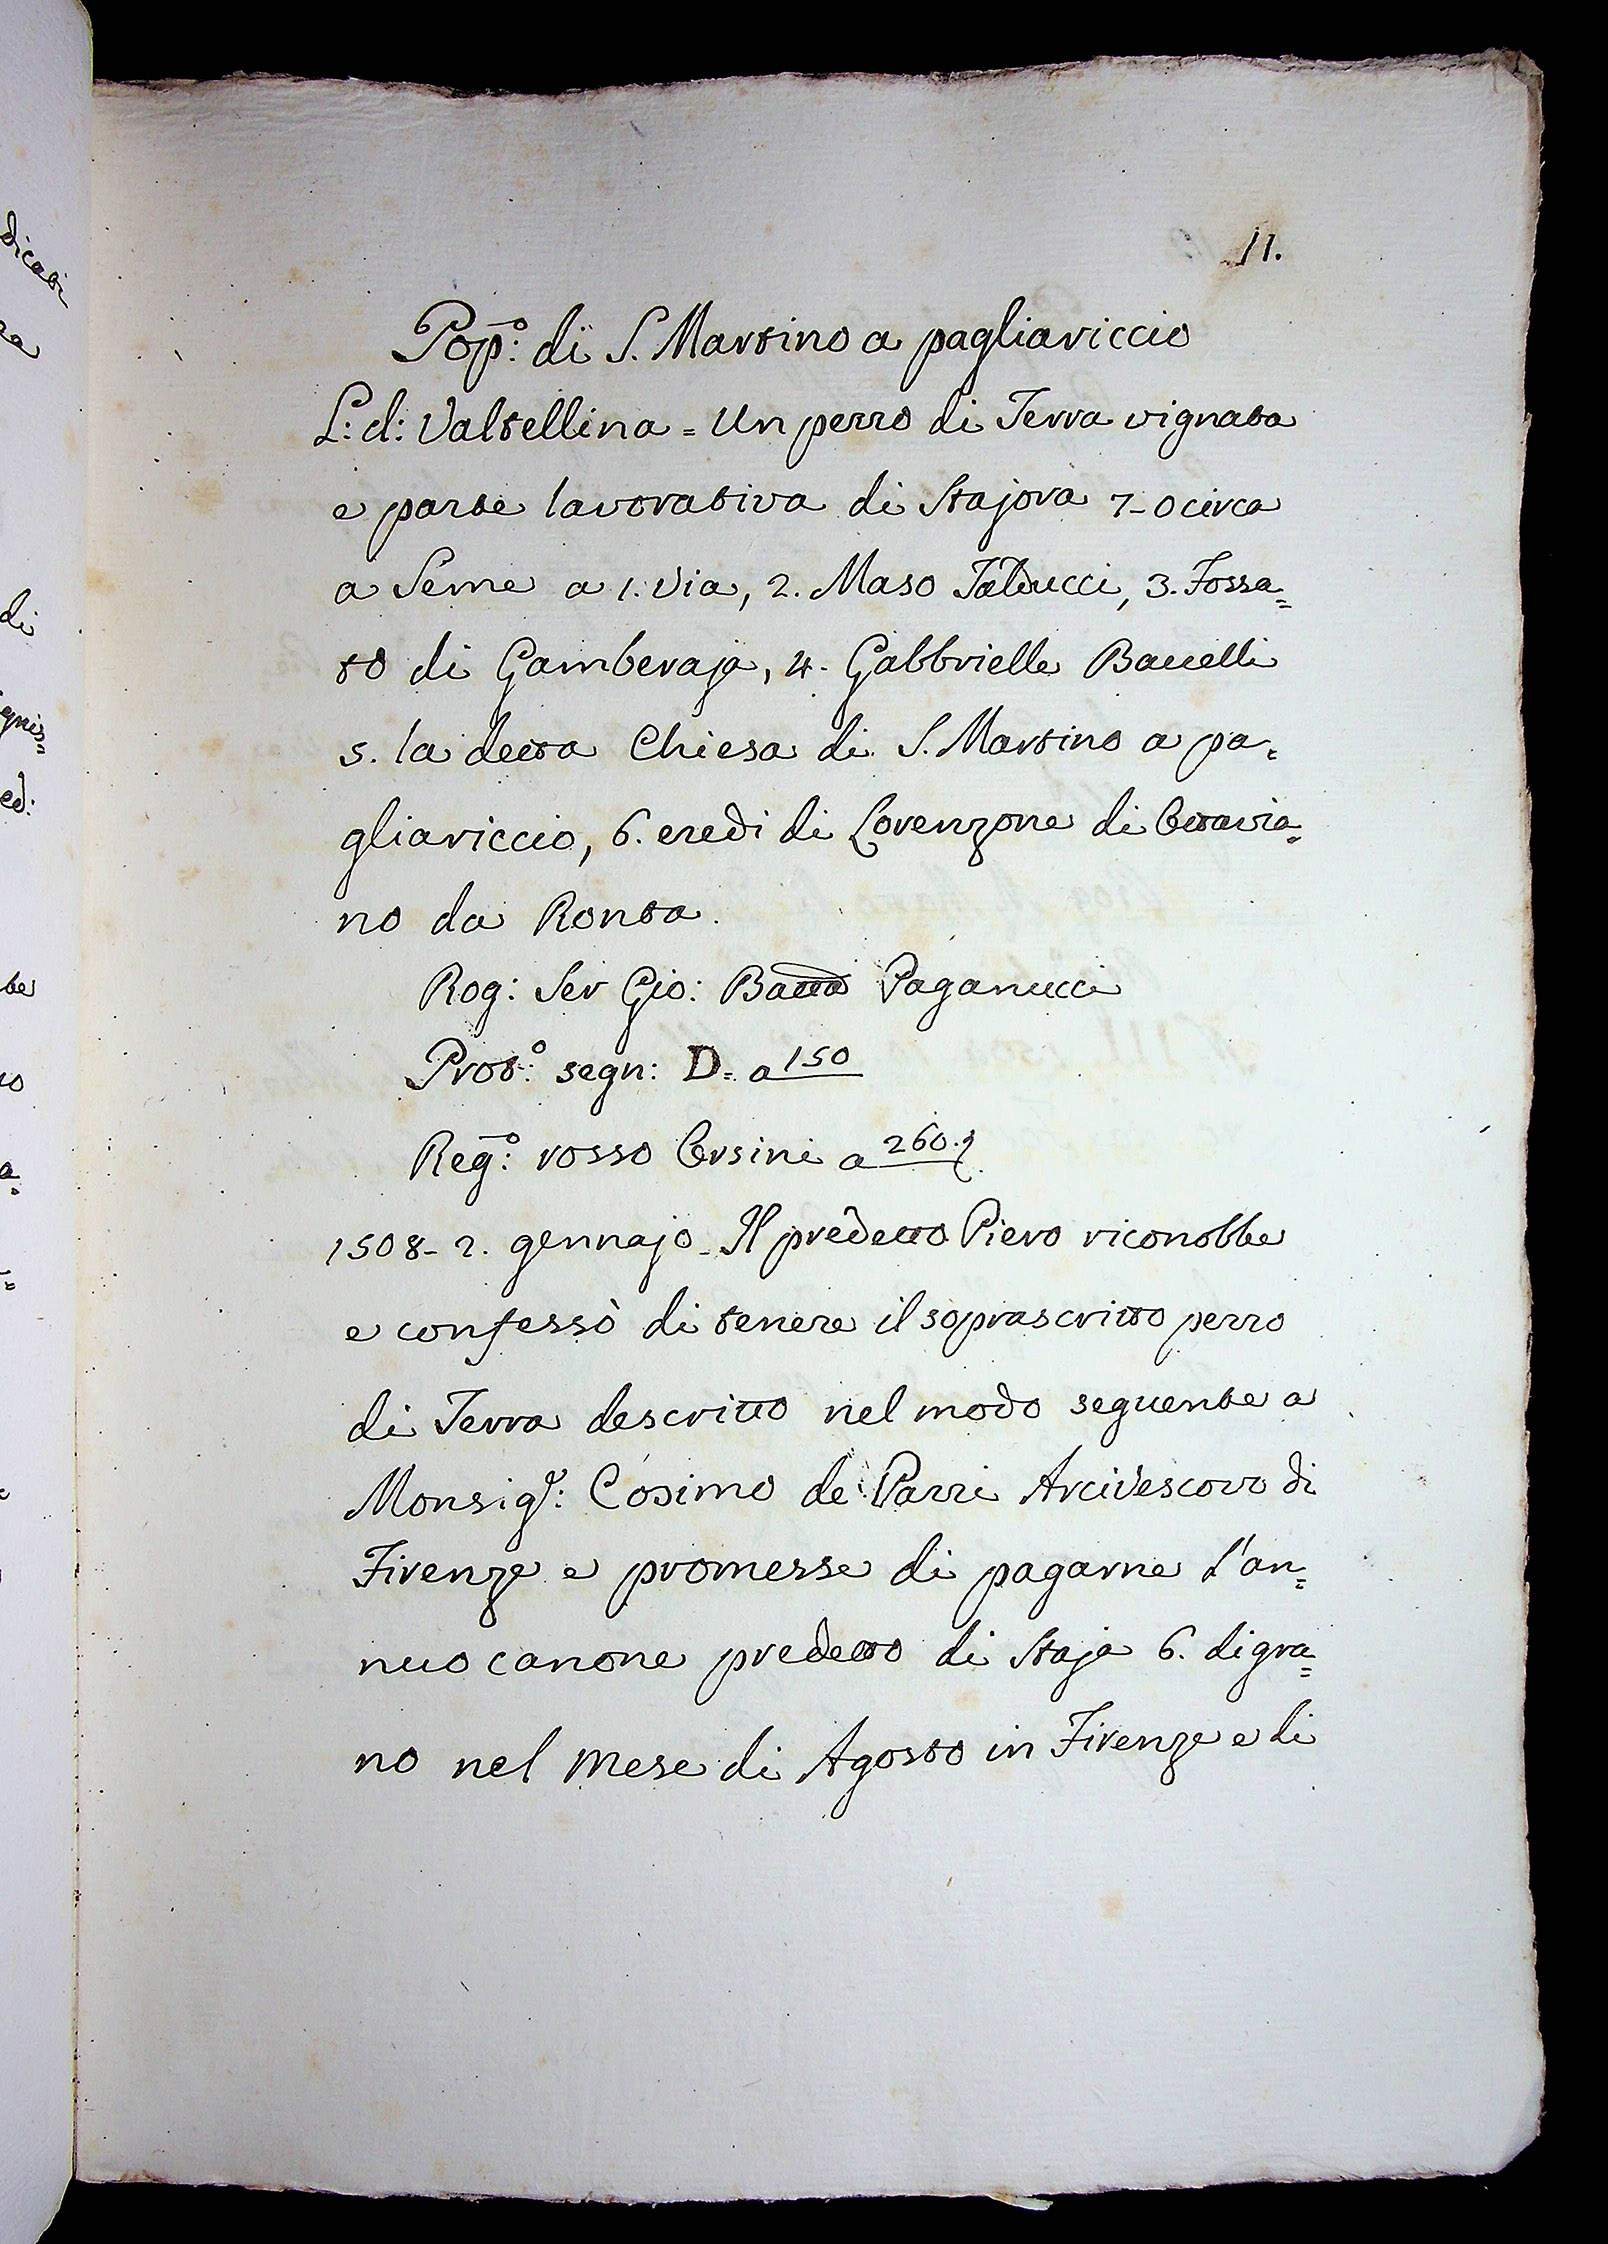 11.
Pop:o di S. Martino a pagliariccio
L: d: Valtellina = Un pezzo di Terra vignata
e parte lavorativa di Stajora 7-0 circa
a Seme a 1. Via, 2. Maso Talducci, 3. Fossa=
to di Gamberaja, 4. Gabbrielle Baccelli
5. la detta Chiesa di S. Martino a pa=
gliariccio, 6. eredi di Lorenzone di Ottavia=
no da Ronta.
Rog: Ser Gio: Batta Paganucci
Prot:o segn: D= a 150
Reg:o rosso Orsini a 260.
1508- 2. gennajo_ Il predetto Piero riconobbe
e confessò di tenere il soprascritto pezzo
di Terra descritto nel modo seguente a
Monsigr: Cosimo de' Pazzi Arcivescovo di
Firenze e promesse di pagarne l'an=
nuo canone predetto di Staja 6. di gra=
no nel mese di Agosto in Firenze e di
dicati
di
ed: